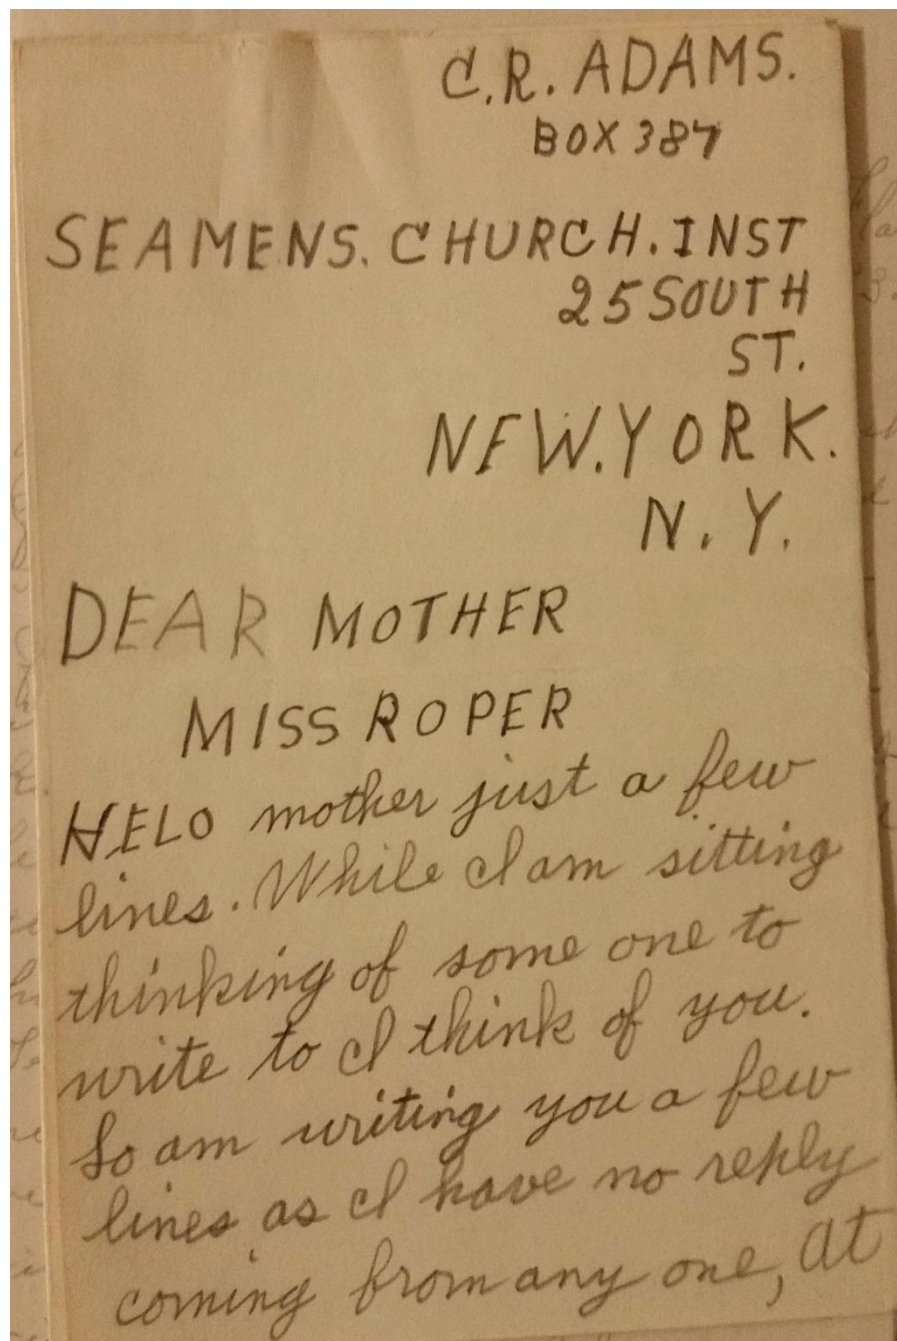 C.R. ADAMS.
BOX 387
SEAMENS. CHURCH. INST
25 SOUTH
ST.
NEW.YORK.
N.Y.
DEAR MOTHER
MISS ROPER
HELO mother just a few
lines. While I am sitting
thinking of some one to
write to I think of you.
So am writing you a few
lines as I have no reply
coming from any one, at